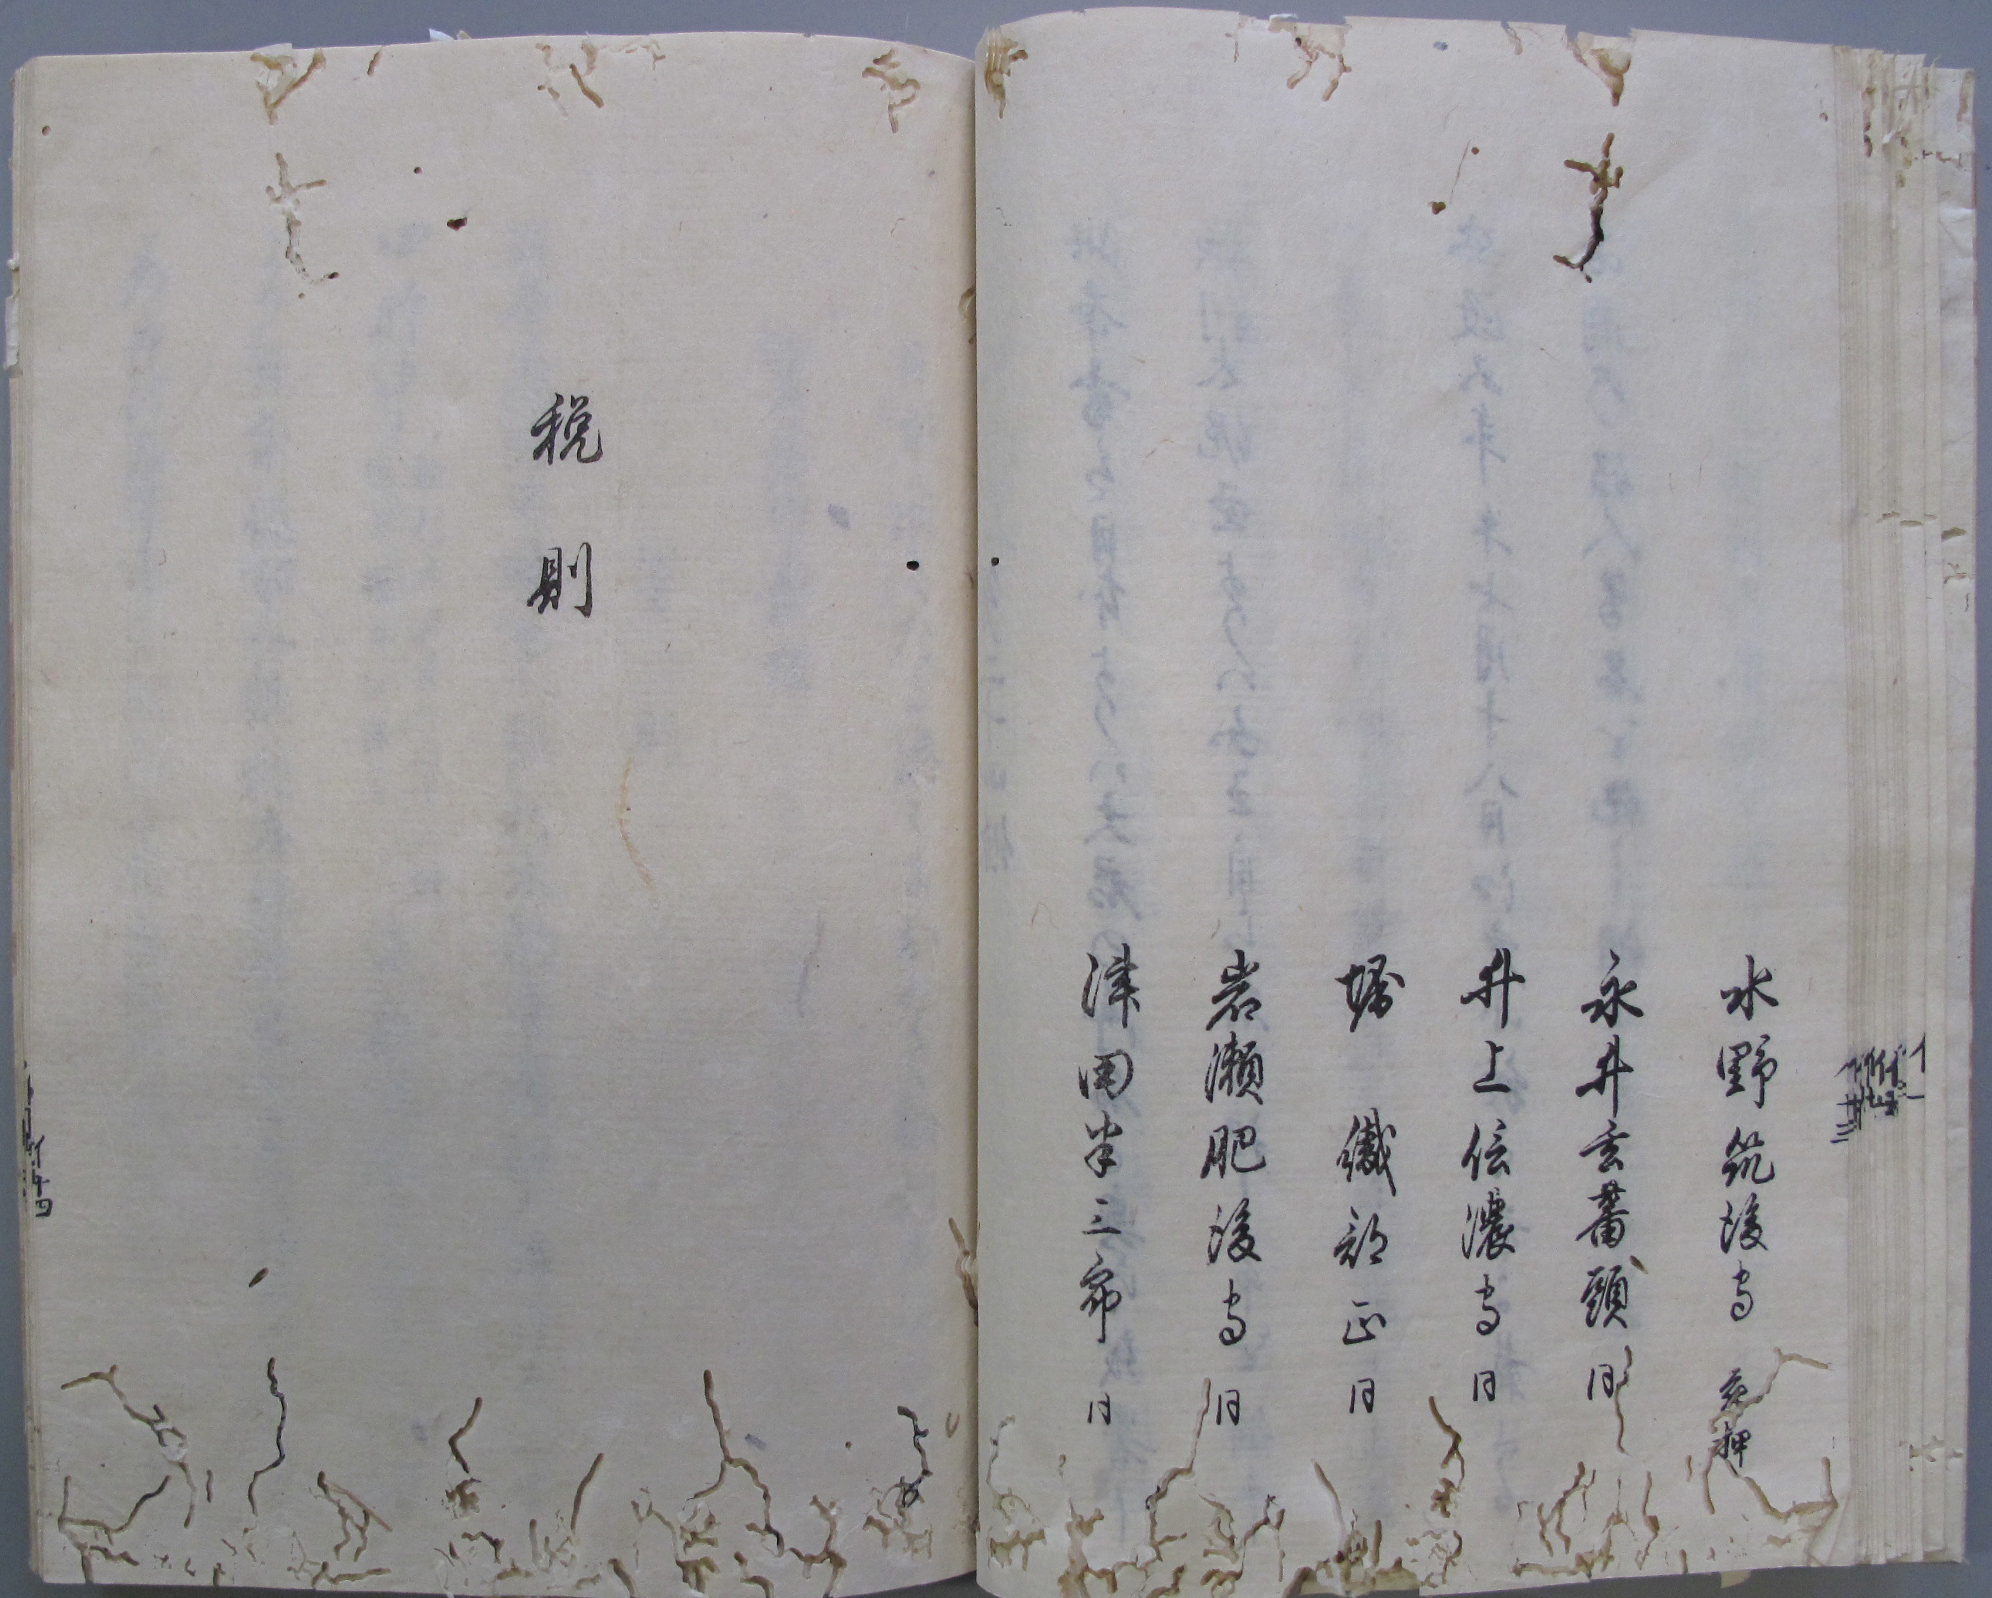 水野筑後守 花押
永井玄蕃頭 同
井上信濃守 同
堀 織部正 同
岩瀬肥後守 同
津田半三郎 同
税則